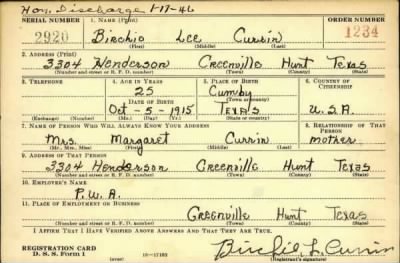 Hon. Discharge 1-17-46
SERIAL NUMBER 1. NAME (Print) ORDER NUMBER
2920 Birchie Lee Currin 1234
(First) (Middle) (Last)
2. ADDRESS (Print)
3304 Henderson Greenville Hunt Texas
(Number and street or R. F. D. number) (Town) (County) (State)
3. TELEPHONE 4. AGE IN YEARS 5. PLACE OF BIRTH 6. COUNTRY OF CITIZENSHIP
25 Cumby
DATE OF BIRTH (Town or county)
Oct-5-1915 Texas U.S.A.
(Exchange) (Number) (Mo.) (Day) (Yr.) (State or country)
7. NAME OF PERSON WHO WILL ALWAYS KNOW YOUR ADDRESS 8. RELATIONSHIP OF THAT PERSON
Mrs. Margaret Currin mother
(Mr., Mrs., Miss) (First) (Middle) (Last)
9. ADDRESS OF THAT PERSON
3304 Henderson Greenville Hunt Texas
(Number and street or R. F. D. number) (Town) (County) (State)
10. EMPLOYER'S NAME
P.W.A.
11. PLACE OF EMPLOYMENT OR BUSINESS
Greenville Hunt Texas
(Number and street or R. F. D. number) (Town) (County) (State)
I AFFIRM THAT I HAVE VERIFIED ABOVE ANSWERS AND THAT THEY ARE TRUE.
REGISTRATION CARD
D. S. S. Form 1 16-17105 Birchie L. Currin
(Registrant's signature)